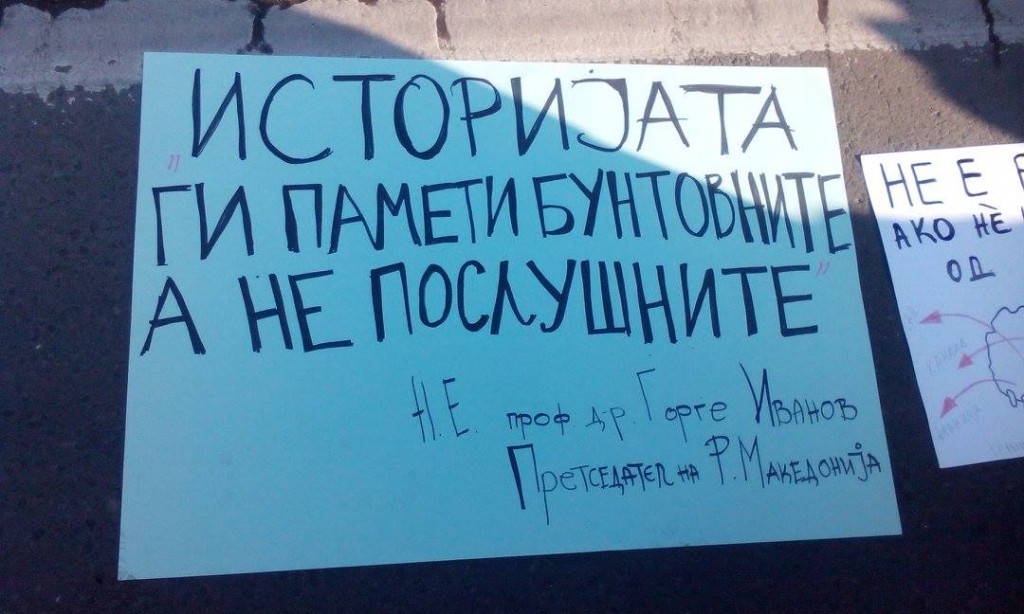 "ИСТОРИЈАТА
ГИ ПАМЕТИ БУНТОВНИТЕ
А НЕ ПОСЛУШНИТЕ"
Н.Е. проф. др. Горге Иванов
Претседател на Р. Македонија
НЕ Е
АКО НЀ
ОД